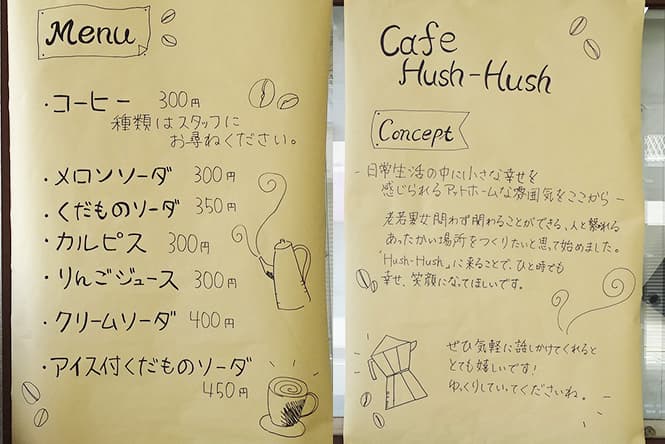 Menu
・コーヒー 300円
種類はスタッフに
お尋ねください。
・メロンソーダ 300円
・くだものソーダ 350円
・カルピス 300円
・りんごジュース 300円
・クリームソーダ 400円
・アイス付くだものソーダ
450円
Cafe
Hush-Hush
Concept
- 日常生活の中に小さな幸せを
感じられるアットホームな雰囲気をここから -
老若男女問わず関わることができる、人と繋がれる
あったかい場所をつくりたいと思って始めました。
「Hush-Hush」に来ることで、ひと時でも
幸せ、笑顔になってほしいです。
ぜひ気軽に話しかけてくれると
とても嬉しいです!
ゆっくりしていってくださいね。